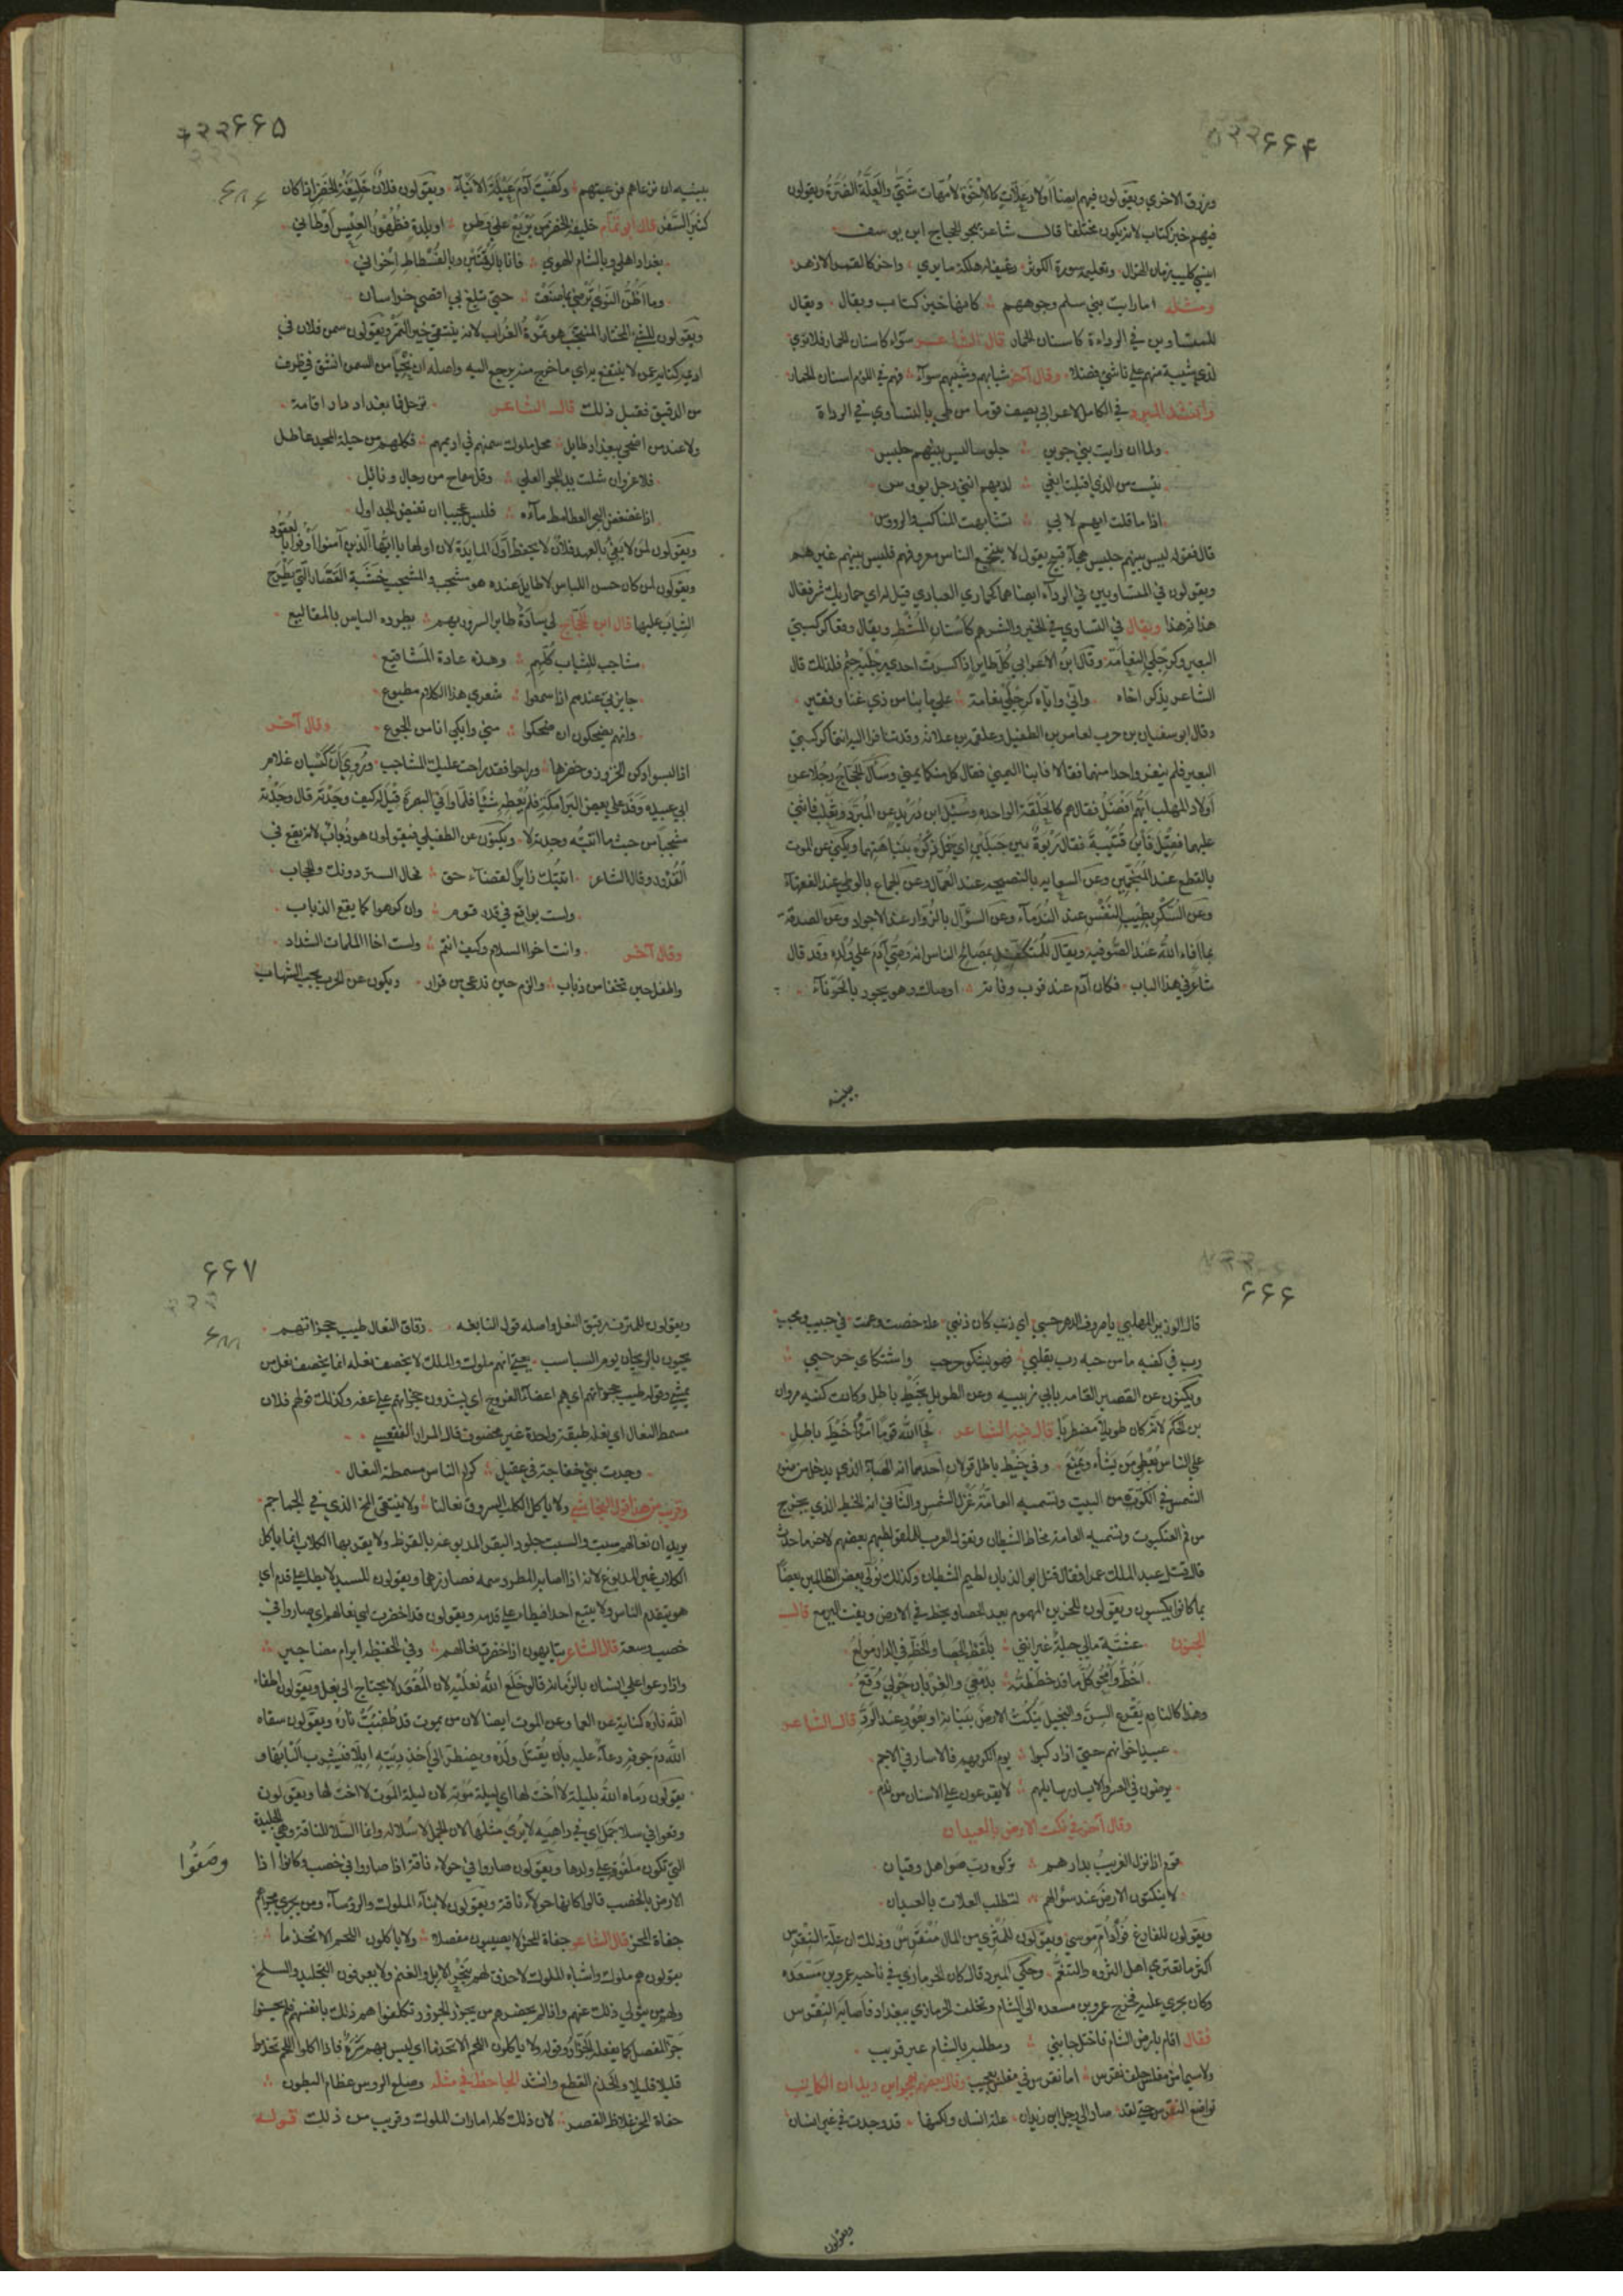 ۶۶۴
ويرزق الاخرى ويقولون فيهم ايضا اولاد علات كالاخوة لامهات شتى والعلة الضرة ويقولون
فيهم خبز كتاب لانه يكون مختلفا قال شاعر يهجو الحجاج ابن يوسف
اينسى كليب زمان الهزال وتعليمه سورة الكوثر رغيف له فلكة ما يرى واخر كالقمر الازهر
ومثله اما رايت بني سلم وجوههم كانها خبز كتاب ويقال ويقال
للمتساوين في الرداءة كاسنان الحمار قال الشاعر سواء كاسنان الحمار فلا ترى
لذي شيبة منهم على ناشئ فضلا وقال آخر شبابهم وشيبهم سواء فهم في اللؤم اسنان الحمار
وانشد المبرد في الكامل لاعرابي يصف قوما من طي بالتساوي في الرداة
ولما ان رايت بني جوين جلوسا ليس بينهم جليس
يئست من الذي اقبلت ابغي لديهم انني رجل يؤس
اذا ما قلت ايهم لاي تشابهت المناكب والرؤوس
قال فقوله ليس بينهم جليس هجاء قبيح يقول لا ينتجع الناس معروفهم فليس بينهم غيرهم
ويقولون في المتساويين في الرداء ايضا هما كحماري العبادي قيل له اي حماريك شر فقال
هذا ثم هذا ويقال في التساوي في الخير والشر هم كاسنان المشط ويقال وقعا كركبتي
البعير وكرجلي النعامة وقال ابن الاعرابي كل طاير اذا كسرت احدى رجليه جثم فلذلك قال
الشاعر يذكر اخاه واني واياه كرجلي نعامة على ما بنا من ذي غنا وفقير
وقال ابو سفيان بن حرب لعامر بن الطفيل وعلقمه بن علاثه وقد تنافرا اليه انتما كركبتي
البعير فلم ينفر واحدا منهما فقالا فاينا اليمنى فقال كل منكما يمنى وسأل الحجاج رجلا عن
اولاد المهلب ايهم افضل فقال هم كالحلقة الواحده وسئل ابن دريد عن المبرد وثعلب فاثنى
عليهما فقيل فابن قتيبة فقال ربوة بين جبلين اي خمل ذكره بنباهتهما ويكنى عن الموت
بالقطع عند المنجمين وعن السعايه بالنصيحه عند العمال وعن الجماع بالوطى عند الفقهاء
وعن السكر بطيب النفس عند الندماء وعن السؤال بالزوار عند الاجواد وعن الصدقة
بما افاء الله عند الصوفيه ويقال للمتكفل بمصالح الناس انه وصي آدم على ولده وقد قال
شاعر في هذا الباب فكان آدم عند قرب وفاته اوصاك وهو يجود بالحوباء
ببنيه
۶۶۵
ببنيه ان ترعاهم فرعيتهم وكفيت آدم عيلة الابناء ويقولون فلان خليفة الخضر اذا كان
كثير السفر قال ابو تمام خليفة الخضر من يربع على وطن او بلدة فظهور العيس اوطاني
بغداد اهلي وبالشام الهوى فانا بالرقتين وبالفسطاط اخواني
وما اظن النوى ترضى بما صنعت حتى تبلغ بي اقصى خراسان
ويقولون للشيء المختار المنتجب هو تمرة الغراب لانه ينتقي خير التمر ويقولون سمن فلان في
اديمه كنايه عمن لا ينتفع به اي ما خرج منه يرجع اليه واصله ان نحيا من السمن انشق في ظرف
من الدقيق فقيل ذلك قال الشاعر ترحل فما بغداد دار اقامة
ولا عند من اضحى ببغداد طايل محل ملوك سمنهم في اديمهم فكلهم من حلية المجد عاطل
فلا غرو ان شلت يد المجد والعلى وقل سماح من رجال ونائل
اذا غضغض البحر الغطامط ماءه فليس عجيبا ان تغيض الجداول
ويقولون لمن لا يفي بالعهد فلان لا يحفظ اول المايدة لان اولها يا ايها الذين آمنوا اوفوا بالعقود
ويقولون لمن كان حسن اللباس لا طايل عنده هو مشجب والمشجب خشبة القصار التي يطرح
الثياب عليها قال ابن الحجاج لي سادة طاير السرور بهم يطرده الياس بالمقاليع
مشاجب للثياب كلهم وهذه عادة المشاقيع
جايزتي عندهم اذا سمعوا شعري هذا الكلام مطبوع
وانهم يضحكون ان ضحكوا مني وابكي انا من الجوع وقال آخر
اذا لبسوا دكن الخزوز وخضرها وراحوا فقد راحت عليك المشاجب وروي ان كيسان غلام
ابي عبيده وفد على بعض البرامكة فلم يعطه شيئا فلما وافى البصرة قيل له كيف وجدته قال وجدته
مشجبا من حيث ما اتيته وجدته لا ويكنون عن الطفيلي فيقولون هو ذباب لانه يقع في
القدور وقال الشاعر اتيتك زايرا لقضاء حق فحال الستر دونك والحجاب
ولست بواقع في قدر قوم وان كرهوا كما يقع الذباب
وقال آخر وانت اخو السلام وكيف انتم ولست اخا الملمات الشداد
واطفل حين تجفى من ذباب والزم حين تدعى من قراد ويكنون عن الجرب بحب الشباب
۶۶۶
قال الوزير المهلبي يا صروف الدهر حسبي اي ذنب كان ذنبي علة خصت وعمت في حبيب ومحب
دب في كفيه ما من حبه دب بقلبي فهو يشكو حر حب واشتكاي حر حبي
ويكنون عن القصير القامه بابي زبيبه وعن الطويل بخيط باطل وكانت كنيه مروان
بن الحكم لانه كان طويلا مضطربا قال فيه الشاعر لحا الله قوما امروا خيط باطل
على الناس يعطي من يشاء ويمنع وفي خيط باطل قولان احدهما انه الهباء الذي يدخل من ضوء
الشمس في الكوة من البيت وتسميه العامة غزل الشمس والثاني انه الخيط الذي يخرج
من فم العنكبوت وتسميه العامة مخاط الشيطان وتقول العرب للملقو لطيم
قال قتل عبد الملك عمرا فقال قتل ابو الذبان لطيم الشيطان وكذلك نولي بعض الظالمين بعضا
بما كانوا يكسبون ويقولون للحزين المهموم يعد الحصا ويخط في الارض ويفت اليرمع قال
المجنون عشية مالي حيلة غير انني بلقط الحصا والخط في الدار مولع
اخط وامحو كل ما قد خططته بدمعي والغربان حولي وقع
وهذا كالنادم يقرع السن والبخيل ينكث الارض ببنانه او بعود عند الرد قال الشاعر
عبيد اخوانهم حتى اذا ركبوا يوم الكريهه فالاساد في الاجم
يرضون في العسر والايسار سايلهم لا يقرعون على الاسنان من ندم
وقال آخر في نكت الارض بالعيدان
قوم اذا نزل الغريب بدارهم تركوه رب صواهل وقيان
لا ينكتون الارض عند سؤالهم لتطلب العلات بالعيدان
ويقولون للفارغ فؤاد ام موسى ويقولون للمثري من المال منقرس وذلك ان علة النقرس
اكثر ما تعتري اهل الثروه والتنعم وحكى المبرد قال كان الحرمازي في ناحيه عمرو بن مسعده
وكان يجري عليه فخرج عمرو بن مسعده الى الشام وتخلف الحرمازي ببغداد فاصابه النقرس
فقال اقام بارض الشام فاختل جانبي ومطلبه بالشام غير قريب
ولا سيما من مفلس حلف نقرس اما نقرس في مفلس بعجيب وقال بعضهم يهجو ابن زيدان الكاتب
تواضع النقرس حتى لقد صار الى رجل ابن زيدان علة انسان ولكنها قد وجدت في غير انسان
ويقولون
۶۶۷
ويقولون للمترف رقيق النعل واصله قول النابغه رقاق النعال طيب حجزاتهم
يحيون بالريحان يوم السباسب يعني انهم ملوك والملك لا يخصف نعله انما يخصف نعل من
يمشي وقوله طيب حجزاتهم اي هم اعفاء الفروج اي يشدون حجزاتهم على عفه وكذلك قولهم فلان
مسمط النعال اي نعله طبقة واحدة غير مخصوف قال المرار الفقعسي
وجدت بني خفاجة في عقيل كرام الناس مسمطة النعال
وقريب من هذا قول النجاشي ولا ياكل الكلب السروق نعالنا ولا ينتقى المخ الذي في الجماجم
يريد ان نعالهم سبت والسبت جلود البقر المدبوغه بالقرظ ولا يقربها الكلاب انما ياكل
الكلاب غير المدبوغ لانه اذا اصابه المطر دسمه فصار زهما ويقولون للسيد لا يطأ على قدم اي
هو يتقدم الناس ولا يتبع احدا فيطأ على قدمه ويقولون قد اخضرت نعالهم اي صاروا في
خصب وسعة قال الشاعر يتايهون اذا اخضرت نعالهم وفي الحفيظه ابرام مضاجير
واذا دعوا على انسان بالزمانه قالوا خلع الله نعليه لان المقعد لا يحتاج الى نعل ويقولون اطفأ
الله ناره كناية عن العما وعن الموت ايضا لان من يموت قد طفئت ناره ويقولون سقاه
الله دم جوفه دعاء عليه بان يقتل ولده ويضطر الى اخذ ديته ابلا فيشرب البانها و
يقولون رماه الله بليلة لا اخت لها اي ليلة موته لان ليلة الموت لا اخت لها ويقولون
وقعوا في سلا جمل اي في داهيه لا يرى مثلها لان الجمل لا سلا له وانما السلا للناقة وهي الجليدة
التي تكون ملفوفه على ولدها ويقولون صاروا في حولاء ناقة اذا صاروا في خصب وكانوا اذا
وصفوا
الارض بالخصب قالوا كانها حولاء ناقة ويقولون لابناء الملوك والرؤساء ومن يجري مجراهم
جفاة المحز قال الشاعر جفاة المحز لا يصيبون مفصلا ولا ياكلون اللحم الا تخذما
يقولون هم ملوك واشباه الملوك لا حذق لهم بنحر الابل والغنم ولا يعرفون التجليد والسلخ
ولهم من يتولى ذلك عنهم واذا لم يحضرهم من يجزر الجزور وتكلفوا هم ذلك بانفسهم فلم يحسنوا
حز المفصل كما يفعله الجزار وقوله ولا ياكلون اللحم الا تخذما اي ليس بهم شره فاذا اكلوا اللحم تخذموا
قليلا قليلا والخذم القطع وانشد الجاحظ في مثله وصلع الروس عظام البطون
جفاة المحز غلاظ القصر لان ذلك كله امارات الملوك وقريب من ذلك قوله